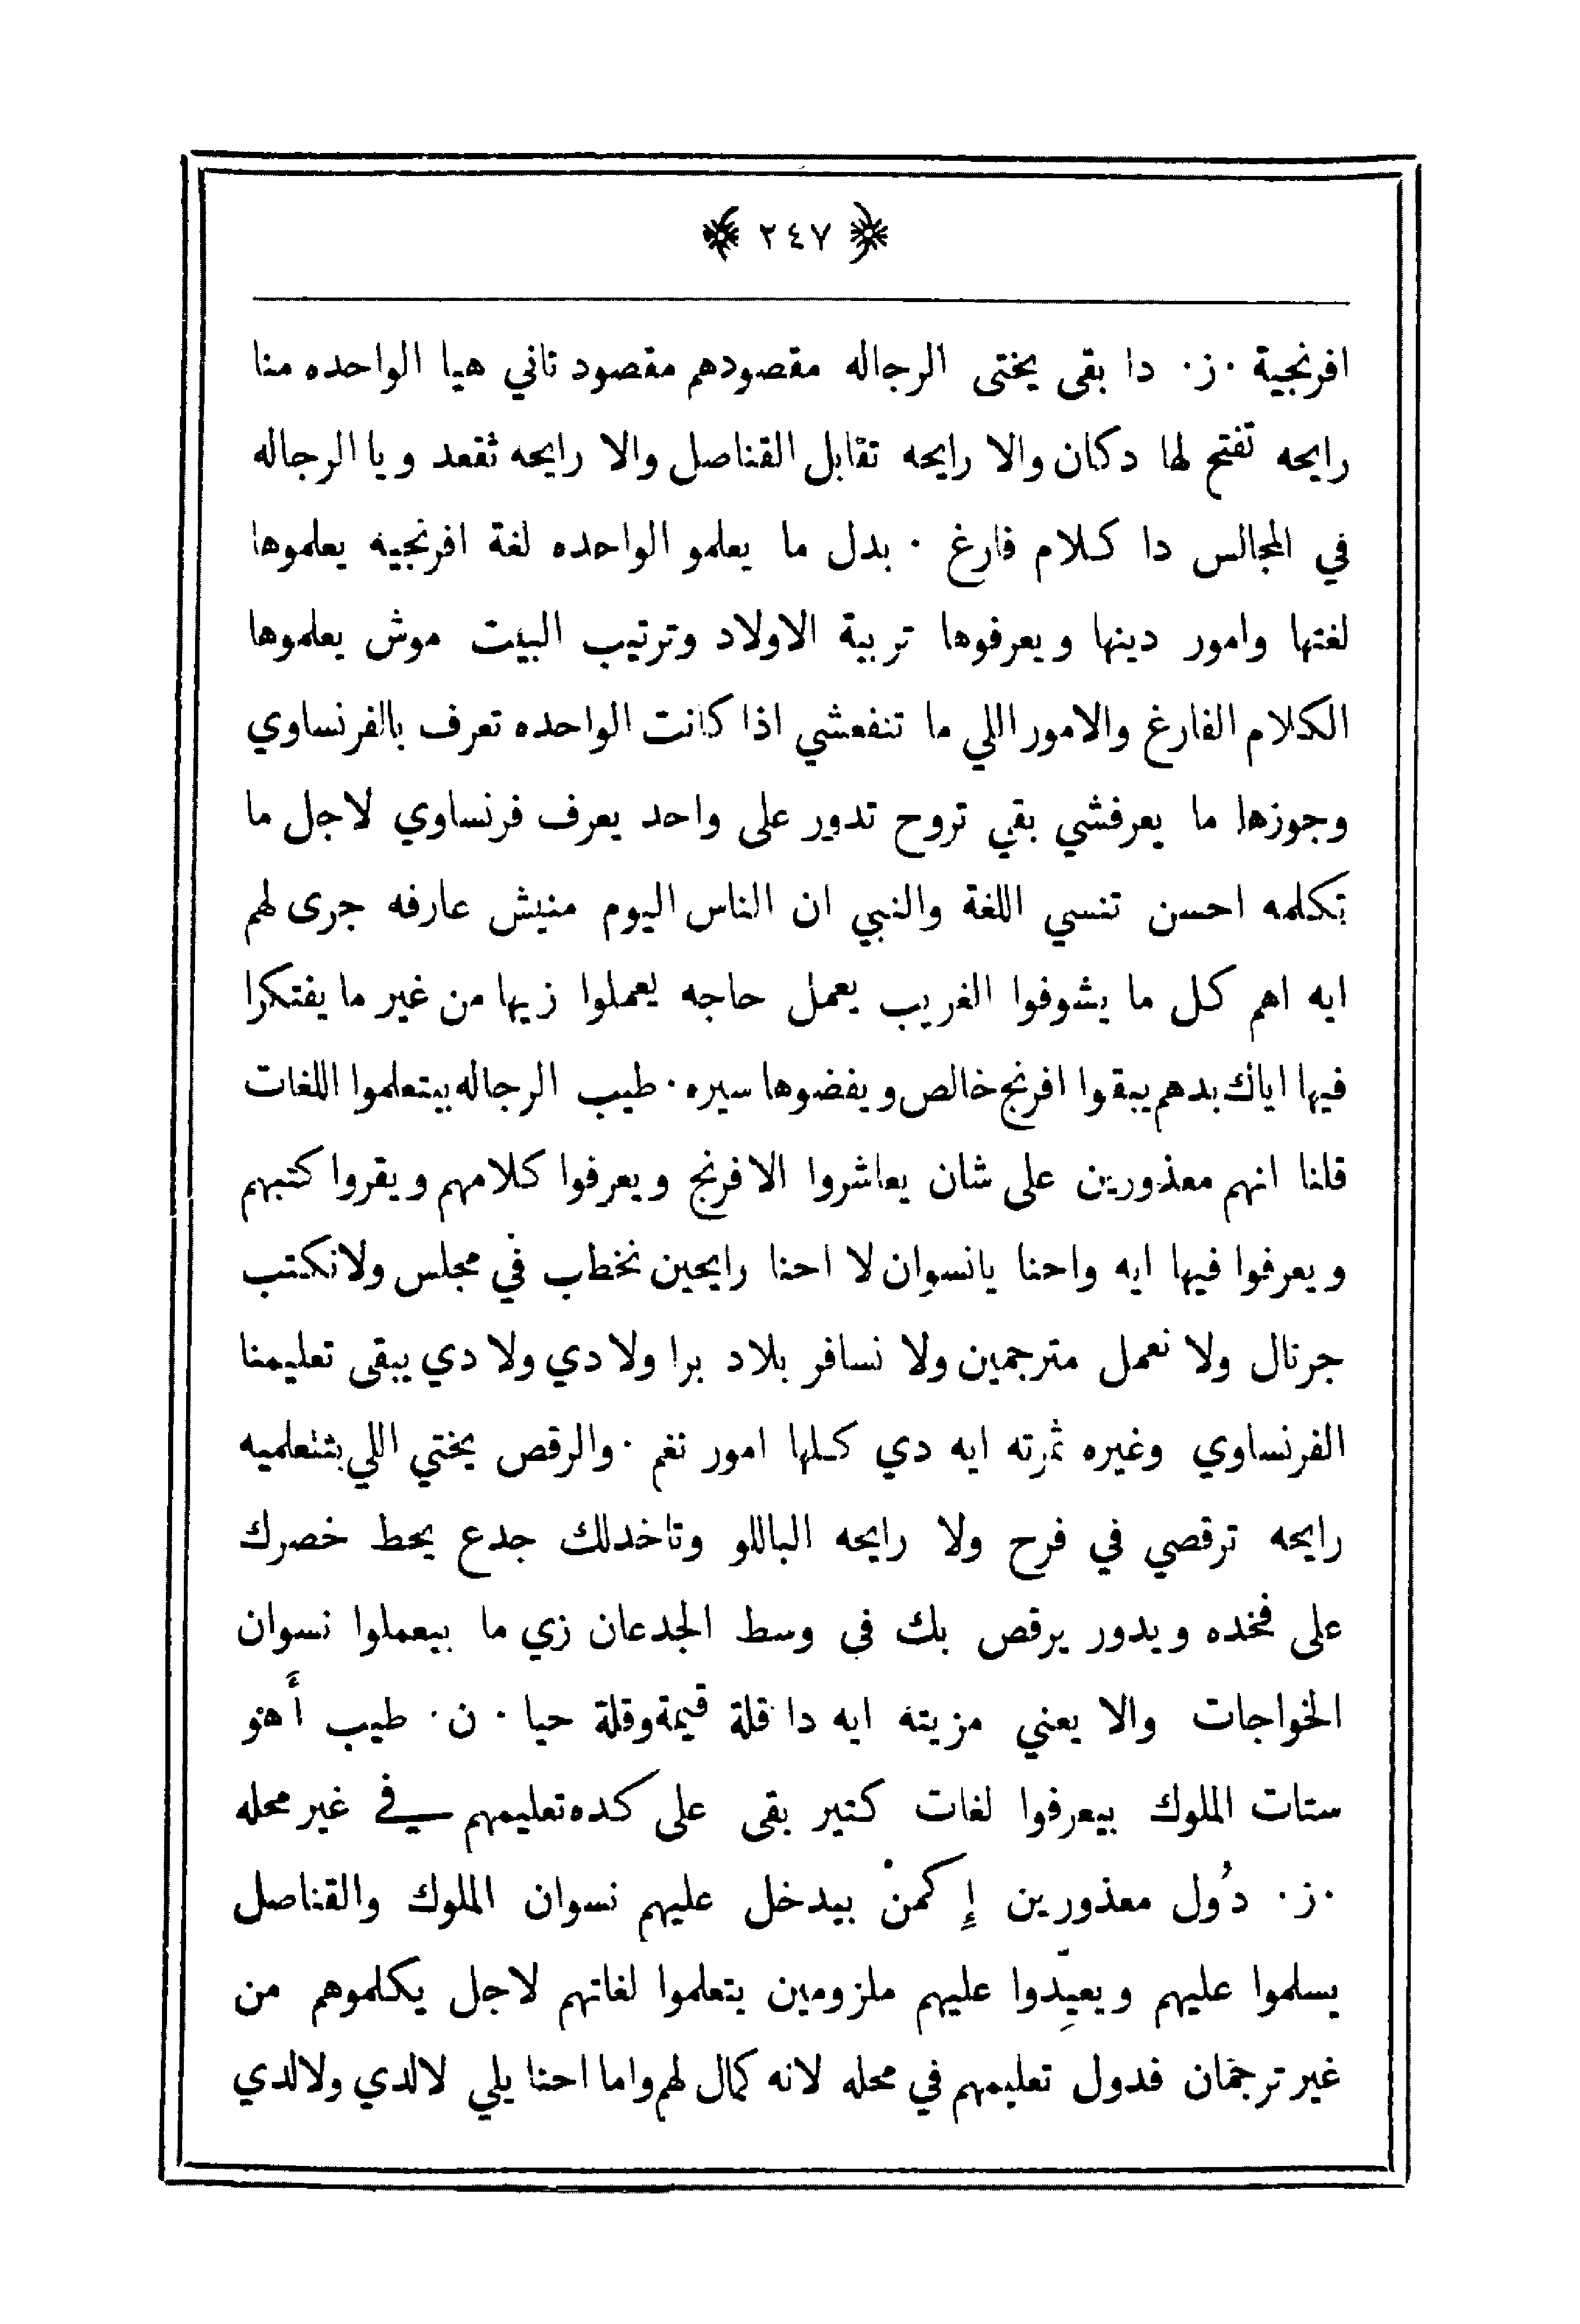 ٢٤٧
افرنجية ٠ز٠ دا بقى يختى الرجاله مقصودهم مقصود تاني هيا الواحده منا
رايحه تفتح لها دكان والا رايحه تقابل القناصل والا رايحه ثقعد ويا الرجاله
في المجالس دا كلام فارغ ٠ بدل ما يعلمو الواحده لغة افرنجيه يعلموها
لغتها وامور دينها ويعرفوها تربية الاولاد وترتيب البيت موش يعلموها
الكلام الفارغ والامور اللي ما تنفعشي اذا كانت الواحده تعرف بالفرنساوي
وجوزها ما يعرفشي بقي تروح تدور على واحد يعرف فرنساوي لاجل ما
تكلمه احسن تنسي اللغة والنبي ان الناس اليوم منيش عارفه جرى لهم
ايه اهم كل ما يشوفوا الغريب يعمل حاجه يعملوا زيها من غير ما يفتكرا
فيها اياك بدهم يبقوا افرنج خالص ويفضوها سيره ٠ طيب الرجاله بيتعلموا اللغات
قلنا انهم معذورين على شان يعاشروا الافرنج ويعرفوا كلامهم ويقروا كتبهم
ويعرفوا فيها ايه واحنا يانسوان لا احنا رايحين نخطب في مجلس ولانكتب
جرنال ولا نعمل مترجمين ولا نسافر بلاد برا ولا دي ولا دي يبقى تعليمنا
الفرنساوي وغيره ثمرته ايه دي كلها امور نغم ٠ والرقص يختي اللي بتتعلميه
رايحه ترقصي في فرح ولا رايحه الباللو وتاخدلك جدع يحط خصرك
على فخده ويدور يرقص بك في وسط الجدعان زي ما بيعملوا نسوان
الخواجات والا يعني مزيته ايه دا قلة قيمة وقلة حيا ٠ ن ٠ طيب أهو
ستات الملوك بيعرفوا لغات كتير بقى على كده تعليمهم في غير محله
٠ز٠ دُول معذورين إكمنْ بيدخل عليهم نسوان الملوك والقناصل
يسلموا عليهم ويعيِّدوا عليهم ملزومين يتعلموا لغاتهم لاجل يكلموهم من
غير ترجمان فدول تعليمهم في محله لانه كمال لهم واما احنا يلي لالدي ولالدي